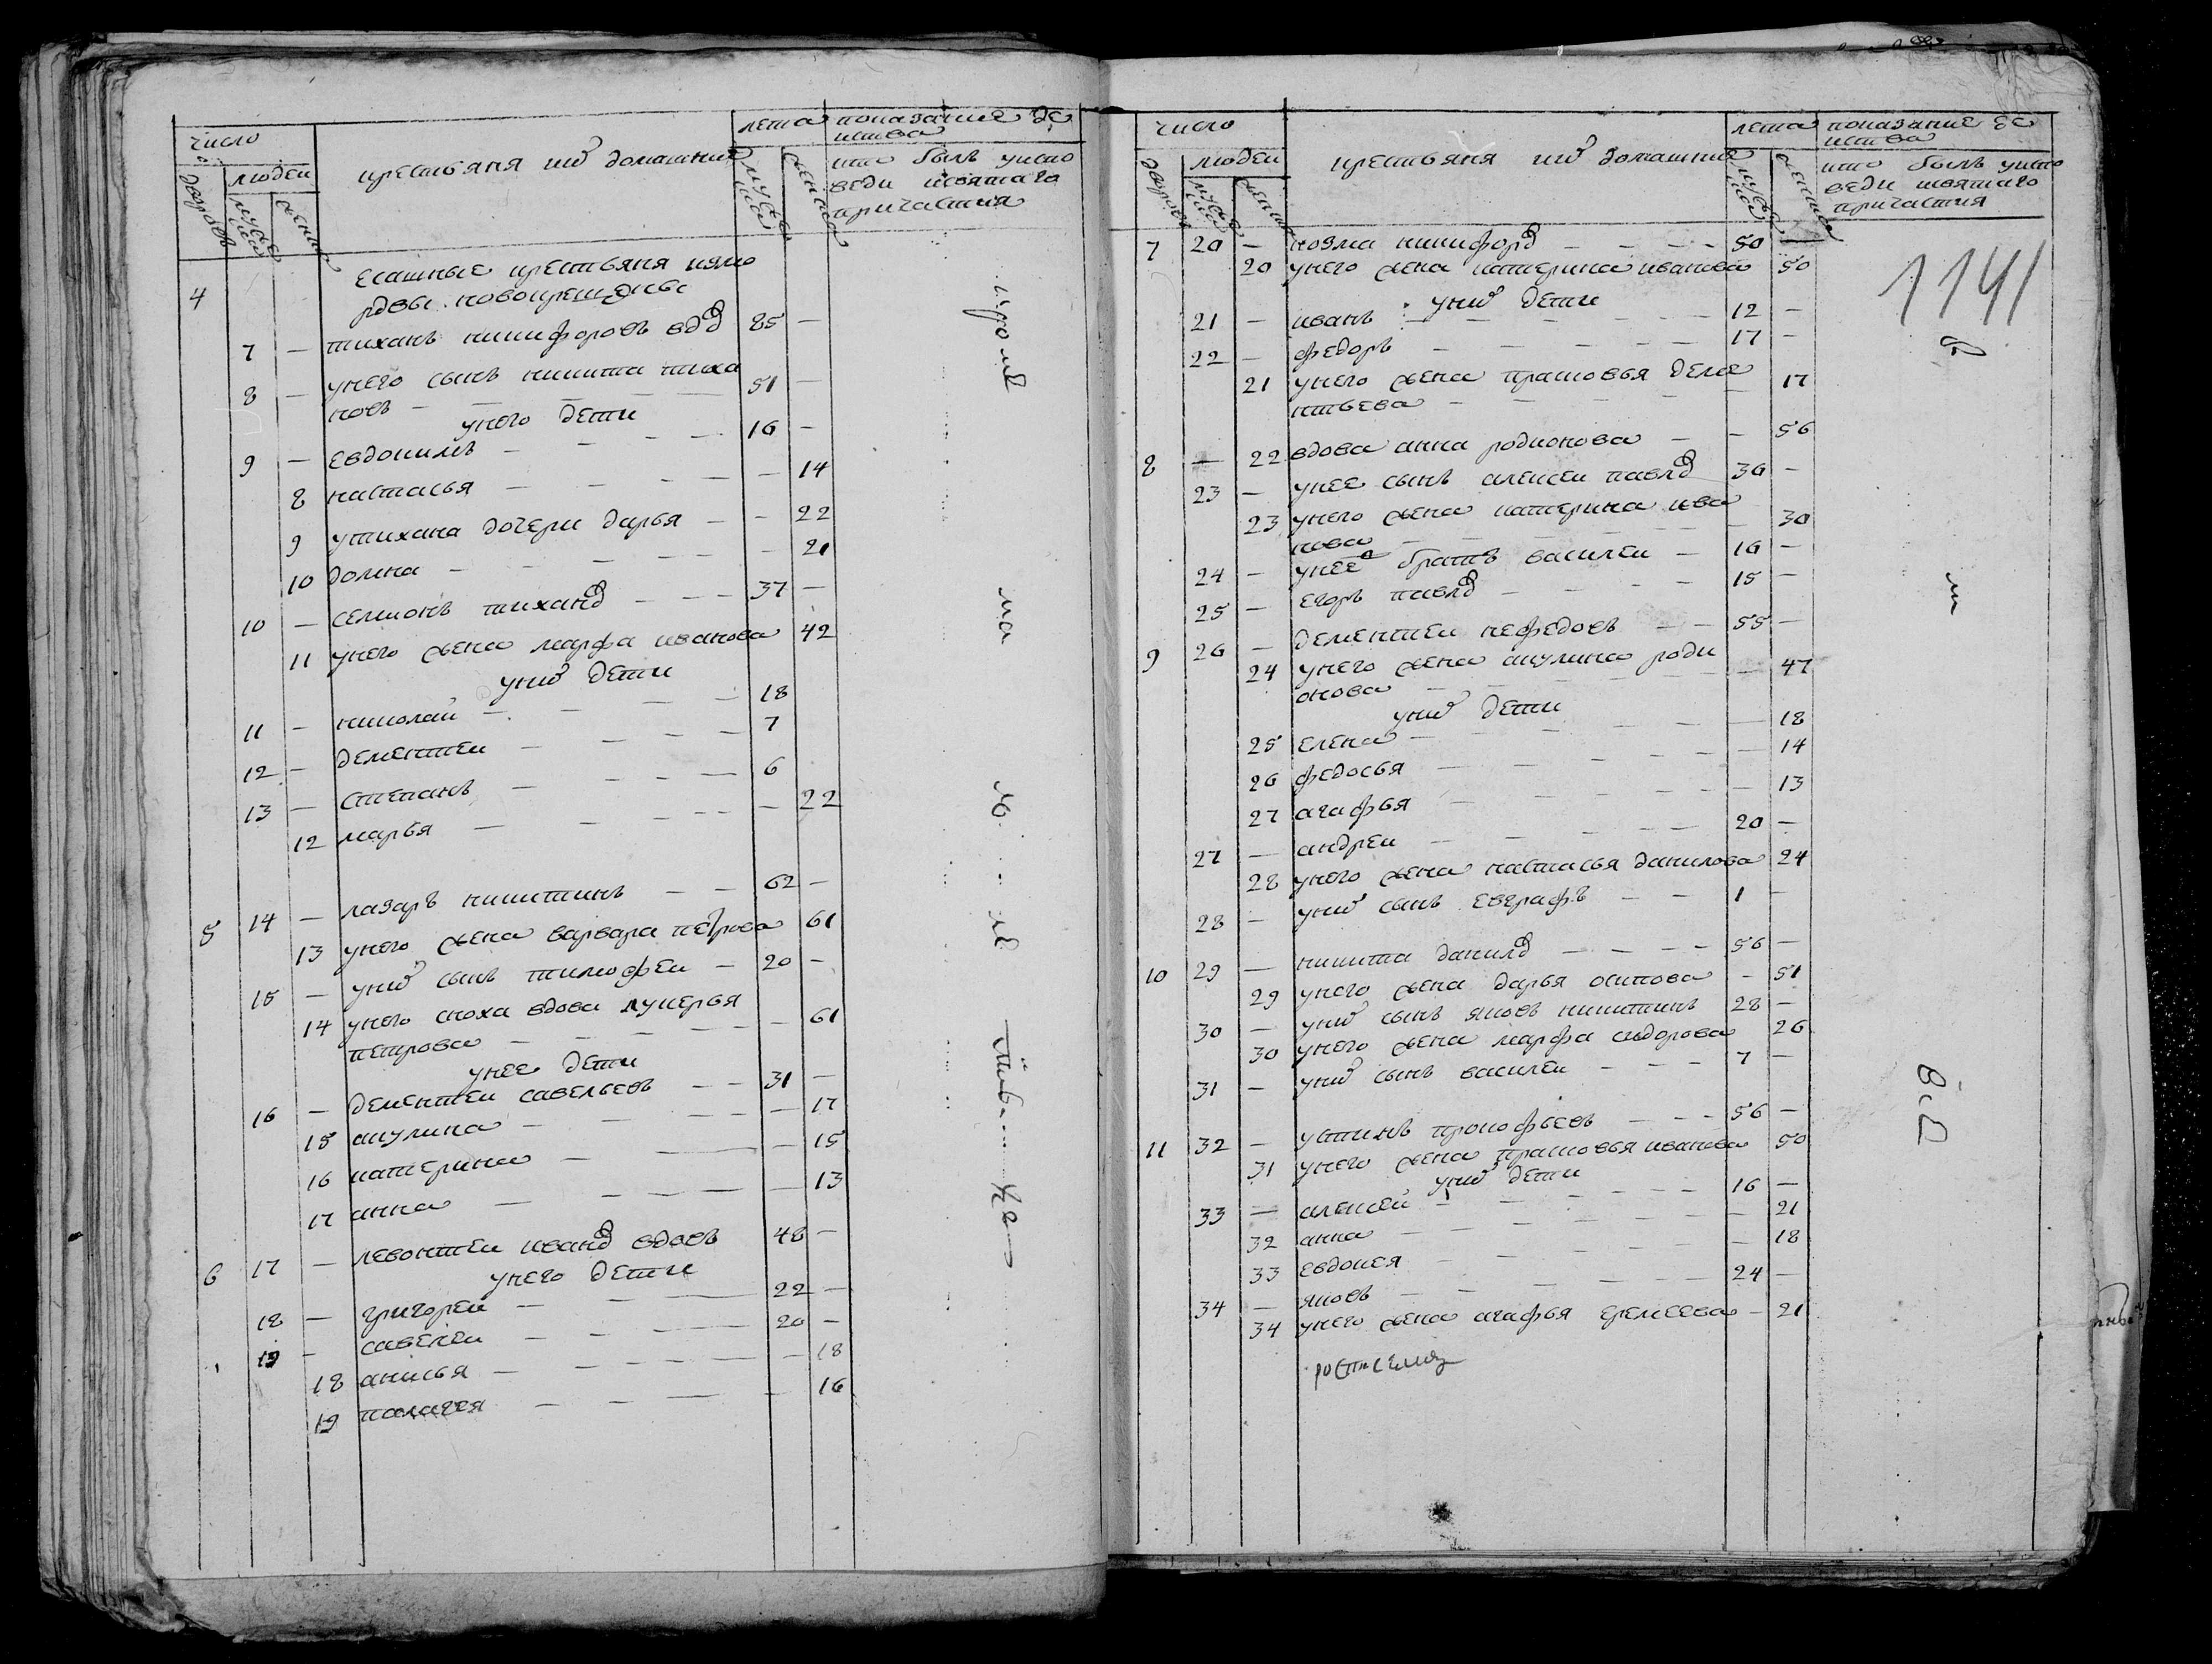 число
людеи
дворовъ
муже
ска
женска
крестьяня ихъ домашние
лета
мужеска
женска
показание де
иства
кто былъ у испо
веди и святаго
причастия
4
есашные крестьяня из мо
рдвы новокрещены
7 — тиханъ никифоровъ вдо 85 —
8 — у него сынъ никита тиха
новъ — 51 —
у него дети
9 — евдокимъ — 16 —
8 настасья — 14
9 у тихана дочери дарья — 22
10 домна — 21
10 — семионъ тихано — 37 —
11 у него жена марфа иванова 42
у них дети
11 — николаи — 18
12 — дементеи — 7
13 — степанъ — 6
12 марья — 22
5 14 — лазарь никитинъ — 62 —
13 у него жена варвара петрова 61
15 — у них сынъ тимофеи — 20 —
14 у него сноха вдова лукерья
петрова — 61
у нее дети
16 — дементеи савельевъ — 31 —
15 акулина — 17
16 катерина — 15
17 анна — 13
6 17 — левонтеи ивано вдовъ 48 —
у него дети
18 — григореи — 22 —
19 — савелеи — 20 —
18 анисья — 18
19 палагея — 16
число
людеи
дворовъ
муже
ска
женска
крестьяня ихъ домашние
лета
мужеска
женска
показание де
иства
кто былъ у испо
веди и святаго
причастия
1141
7 20 — козма никифоро — 50 —
20 у него жена катерина иванова 50
у них дети
21 — иванъ — 12 —
22 — федоръ — 17 —
21 у него жена прасковья деме
нтьева — 17
8 — 22 вдова анна родионова — 56
23 — у нее сынъ алексеи павло 36 —
23 у него жена катерина ива
нова — 30
24 — у нее братъ василеи — 16 —
25 — егоръ павло — 15 —
9 26 — дементеи нефедовъ — 55 —
24 у него жена акулина роди
онова — 47
у них дети
25 елена — 18
26 федосья — 14
27 агафья — 13
27 — андреи — 20 —
28 у него жена настасья данилова 24
28 — у них сынъ евграфъ — 1 —
10 29 — никита данило — 56 —
29 у него жена дарья осипова — 51
30 — у них сынъ яковъ никитинъ 28 —
30 у него жена марфа сидорова 26
31 — у них сынъ василеи — 7 —
11 32 — устинъ прокофьевъ — 56 —
31 у него жена прасковья иванова 50
у них дети
33 — алексеи — 16 —
32 анна — 21
33 евдокея — 18
34 — яковъ — 24 —
34 у него жена агафья еремеева — 21